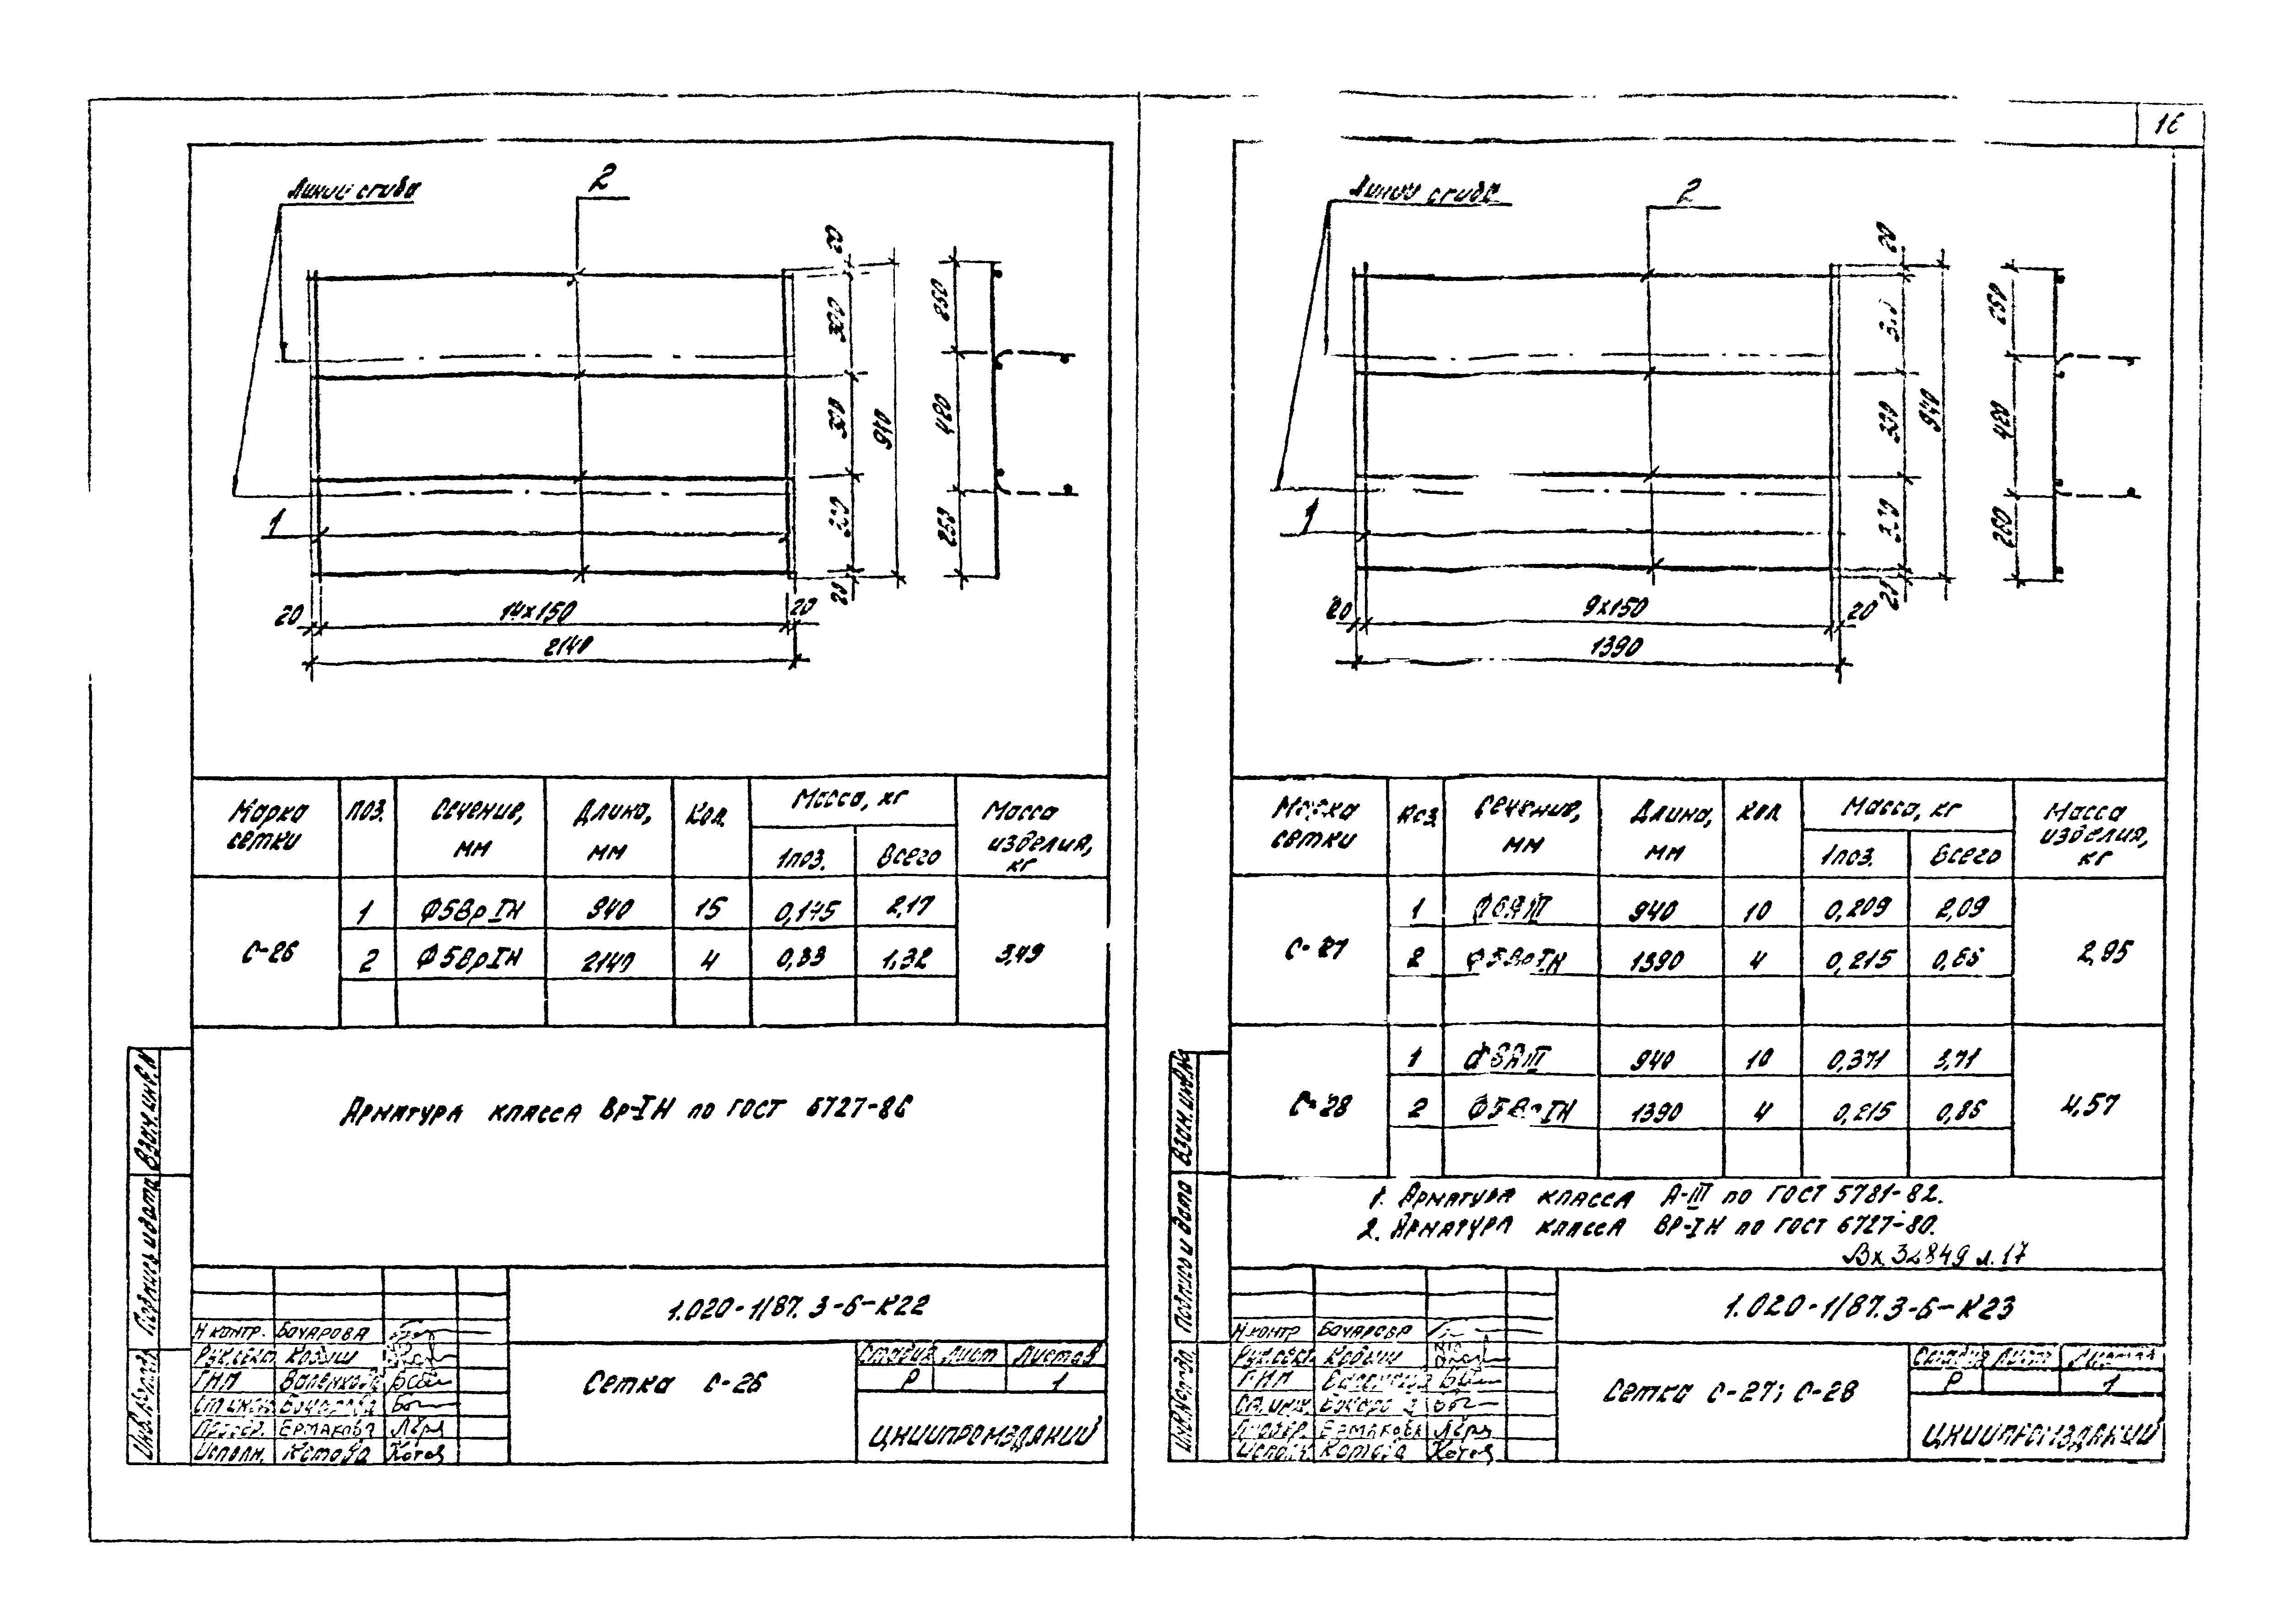 16
Линии сгиба
2
20
300
300
300
20
940
250
480
1
20
14х150
20
2140
Марка сетки
поз.
Сечение, мм
Длина, мм
Кол.
Масса, кг
1 поз.
Всего
Масса изделия, кг
С-26
1
Ф5ВрIН
940
15
0,145
2,17
3,49
2
Ф5ВрIН
2140
4
0,33
1,32
Арматура класса Вр-IН по ГОСТ 6727-80
Взам.инв.N
Подпись и дата
Инв.N подл.
1.020-1/87. 3-6-К22
Н контр. Бочарова
Рук.сект. Кодыш
ГИП
Ст.инж. Бочарова
Провер. Ермакова
Исполн. Котова Котов
Сетка С-26
Стадия Лист Листов
Р 1
ЦНИИПРОМЗДАНИЙ
Линии сгиба
2
20
300
300
300
20
940
480
260
1
20
9х150
20
1390
Марка сетки
поз.
Сечение, мм
Длина, мм
Кол
Масса, кг
1 поз.
Всего
Масса изделия, кг
С-27
1
Ф6АIII
940
10
0,209
2,09
2,95
2
Ф5ВрIН
1390
4
0,215
0,86
С-28
1
Ф8АIII
940
10
0,371
3,71
4,57
2
Ф5ВрIН
1390
4
0,215
0,86
1. Арматура класса А-III по ГОСТ 5781-82.
2. Арматура класса Вр-IН по ГОСТ 6727-80.
Вх. 32849 л.17
Взам.инв.N
Подпись и дата
Инв.N подл.
1.020-1/87.3-6-К23
Н.контр Бочарова
Рук.сект. Кодыш
ГИП
Ст.инж. Бочарова
Провер. Ермакова
Исполн. Котова Котов
Сетка С-27; С-28
Стадия Лист Листов
Р 1
ЦНИИПРОМЗДАНИЙ